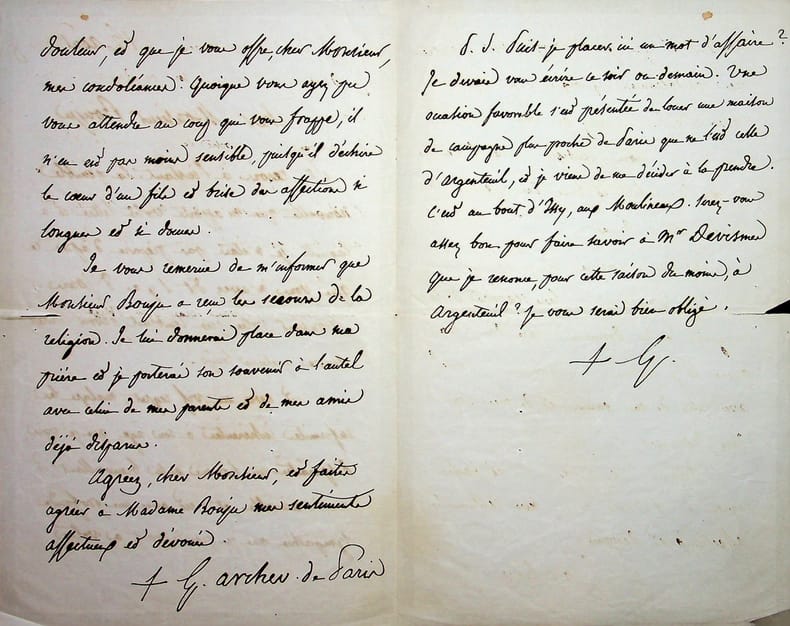 douleur, et que je vous offre, cher Monsieur,
mes condoléances. Quoique vous ayez pu
vous attendre au coup qui vous frappe, il
n'en est pas moins sensible, puisqu'il déchire
le cœur d'un fils et brise des affections si
longues et si douces.
Je vous remercie de m'informer que
Monsieur Bouju a reçu les secours de la
religion. Je lui donnerai place dans ma
prière et je porterai son souvenir à l'autel
avec celui de mes parents et de mes amis
déjà disparus.
Agréez, cher Monsieur, et faites
agréer à Madame Bouju mes sentiments
affectueux et dévoués.
+ G. archev. de Paris
P. S. Puis-je placer ici un mot d'affaire?
Je devais vous écrire ce soir ou demain. Une
occasion favorable s'est présentée de louer une maison
de campagne plus proche de Paris que ne l'est celle
d'Argenteuil, et je viens de me décider à la prendre.
C'est au bout d'Issy, aux Moulineaux. Serez-vous
assez bon pour faire savoir à Mr Devismes
que je renonce, pour cette saison du moins, à
Argenteuil? Je vous serai bien obligé.
+ G.